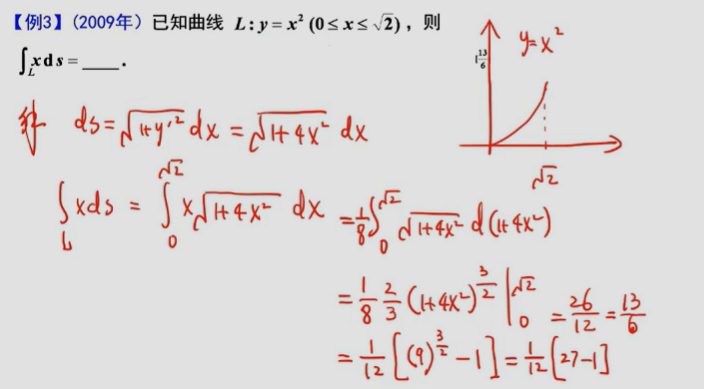 【例3】(2009年) 已知曲线 L: y = x² (0 ≤ x ≤ √2)，则
∫_L x ds = ____.
y=x²
13/6
√2
解 ds = √(1+y'²) dx = √(1+4x²) dx
∫_L x ds = ∫_0^√2 x√(1+4x²) dx = 1/8 ∫_0^√2 √(1+4x²) d(1+4x²)
= 1/8 2/3 (1+4x²)^(3/2) |_0^√2 = 26/12 = 13/6
= 1/12 [(9)^(3/2) - 1] = 1/12 [27-1]